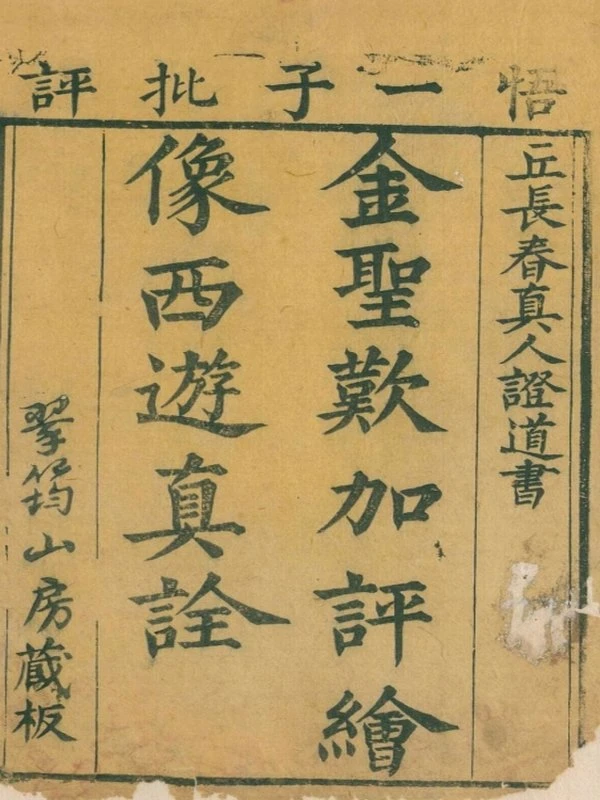 悟一子批評
丘長春真人證道書
金聖歎加評繪
像西遊真詮
翠筠山房藏板